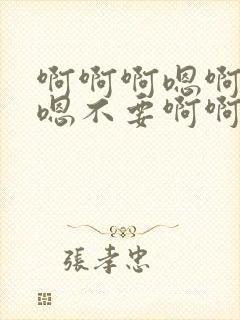 啊啊啊嗯啊
嗯不要啊啊
張孝忠